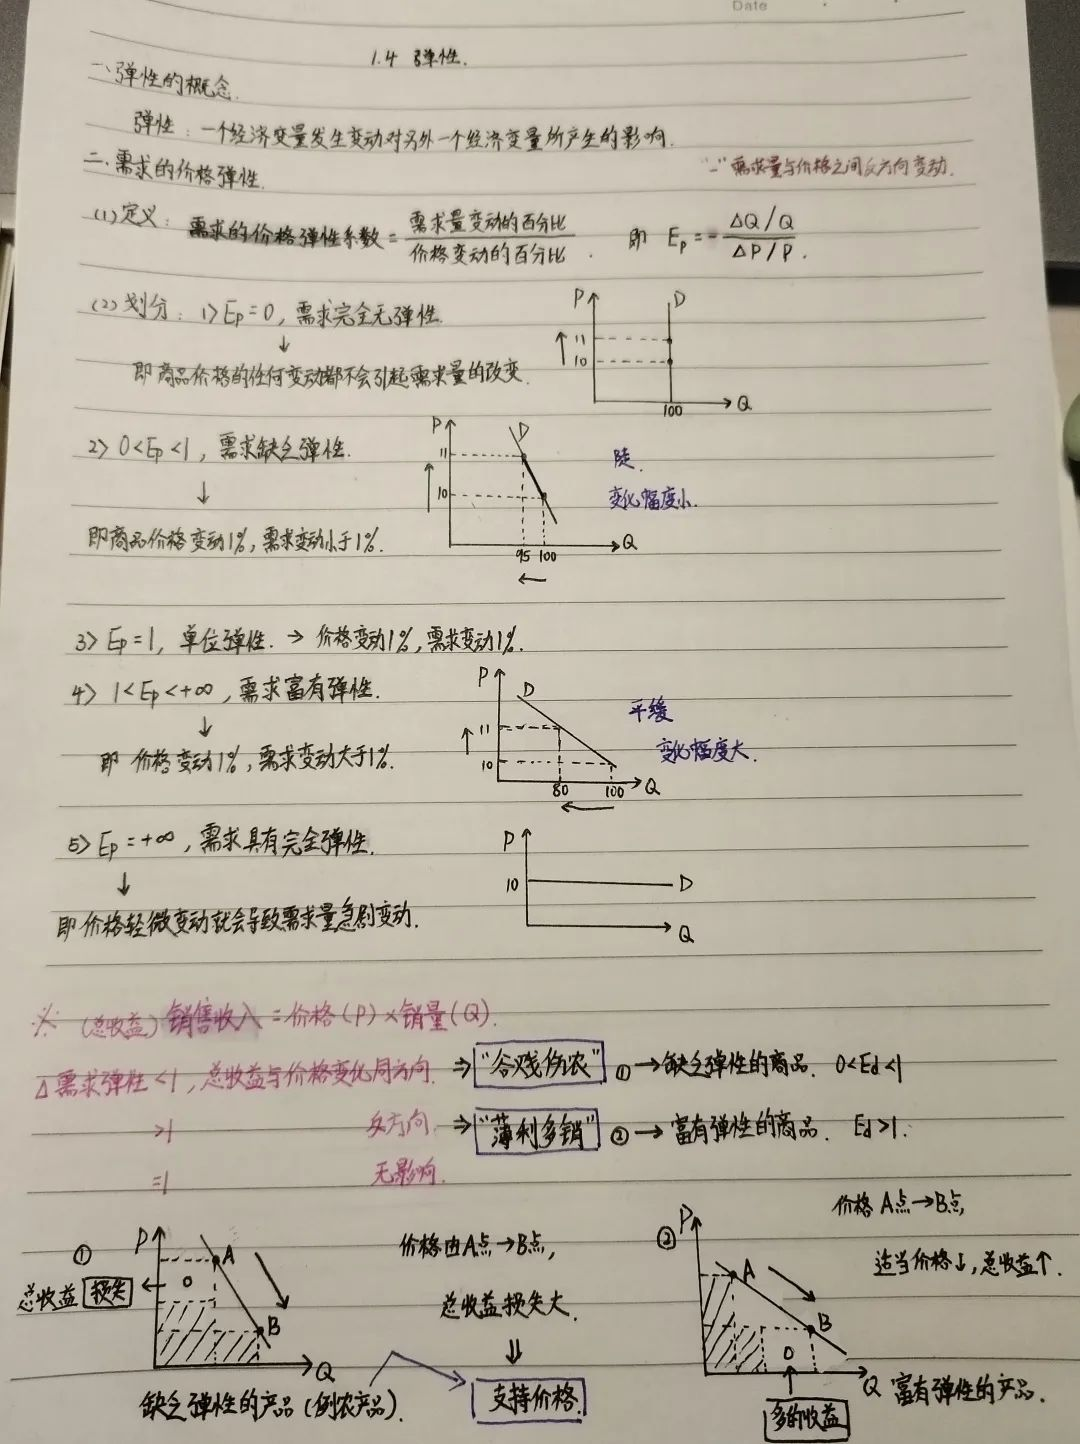 Date
1.4 弹性.
一、弹性的概念.
弹性：一个经济变量发生变动对另外一个经济变量所产生的影响.
二.需求的价格弹性.
"-"需求量与价格之间反方向变动.
(1)定义：需求的价格弹性系数=需求量变动的百分比/价格变动的百分比. 即 Ep=-ΔQ/Q / ΔP/P.
(2)划分：1>Ep=0，需求完全无弹性.
↓
即商品价格的任何变动都不会引起需求量的改变.
P D
↑ 11
10
100 Q
2> 0<Ep<1，需求缺乏弹性.
↓
即商品价格变动1%，需求变动小于1%.
P D
11
↑ 10
95 100 Q
←
陡.
变化幅度小.
3> Ep=1，单位弹性. → 价格变动1%，需求变动1%.
4> 1<Ep<+∞，需求富有弹性.
↓
即 价格变动1%，需求变动大于1%.
P D
↑ 11
10
80 100 Q
←
平缓
变化幅度大.
5> Ep=+∞，需求具有完全弹性.
↓
即价格轻微变动就会导致需求量急剧变动.
P
10 D
Q
※ (总收益)销售收入=价格(P)×销量(Q).
Δ需求弹性<1，总收益与价格变化同方向. ⇒ "谷贱伤农" ① → 缺乏弹性的商品. 0<Ed<1
>1 反方向. ⇒ "薄利多销" ② → 富有弹性的商品. Ed>1.
=1 无影响.
① P A
总收益 损失 ← 0
B
Q
缺乏弹性的产品(例农产品).
价格由A点→B点，
总收益损失大.
⇓
支持价格.
价格A点→B点，
适当价格↓，总收益↑.
② P A
B
0
Q 富有弹性的产品.
↑
多的收益